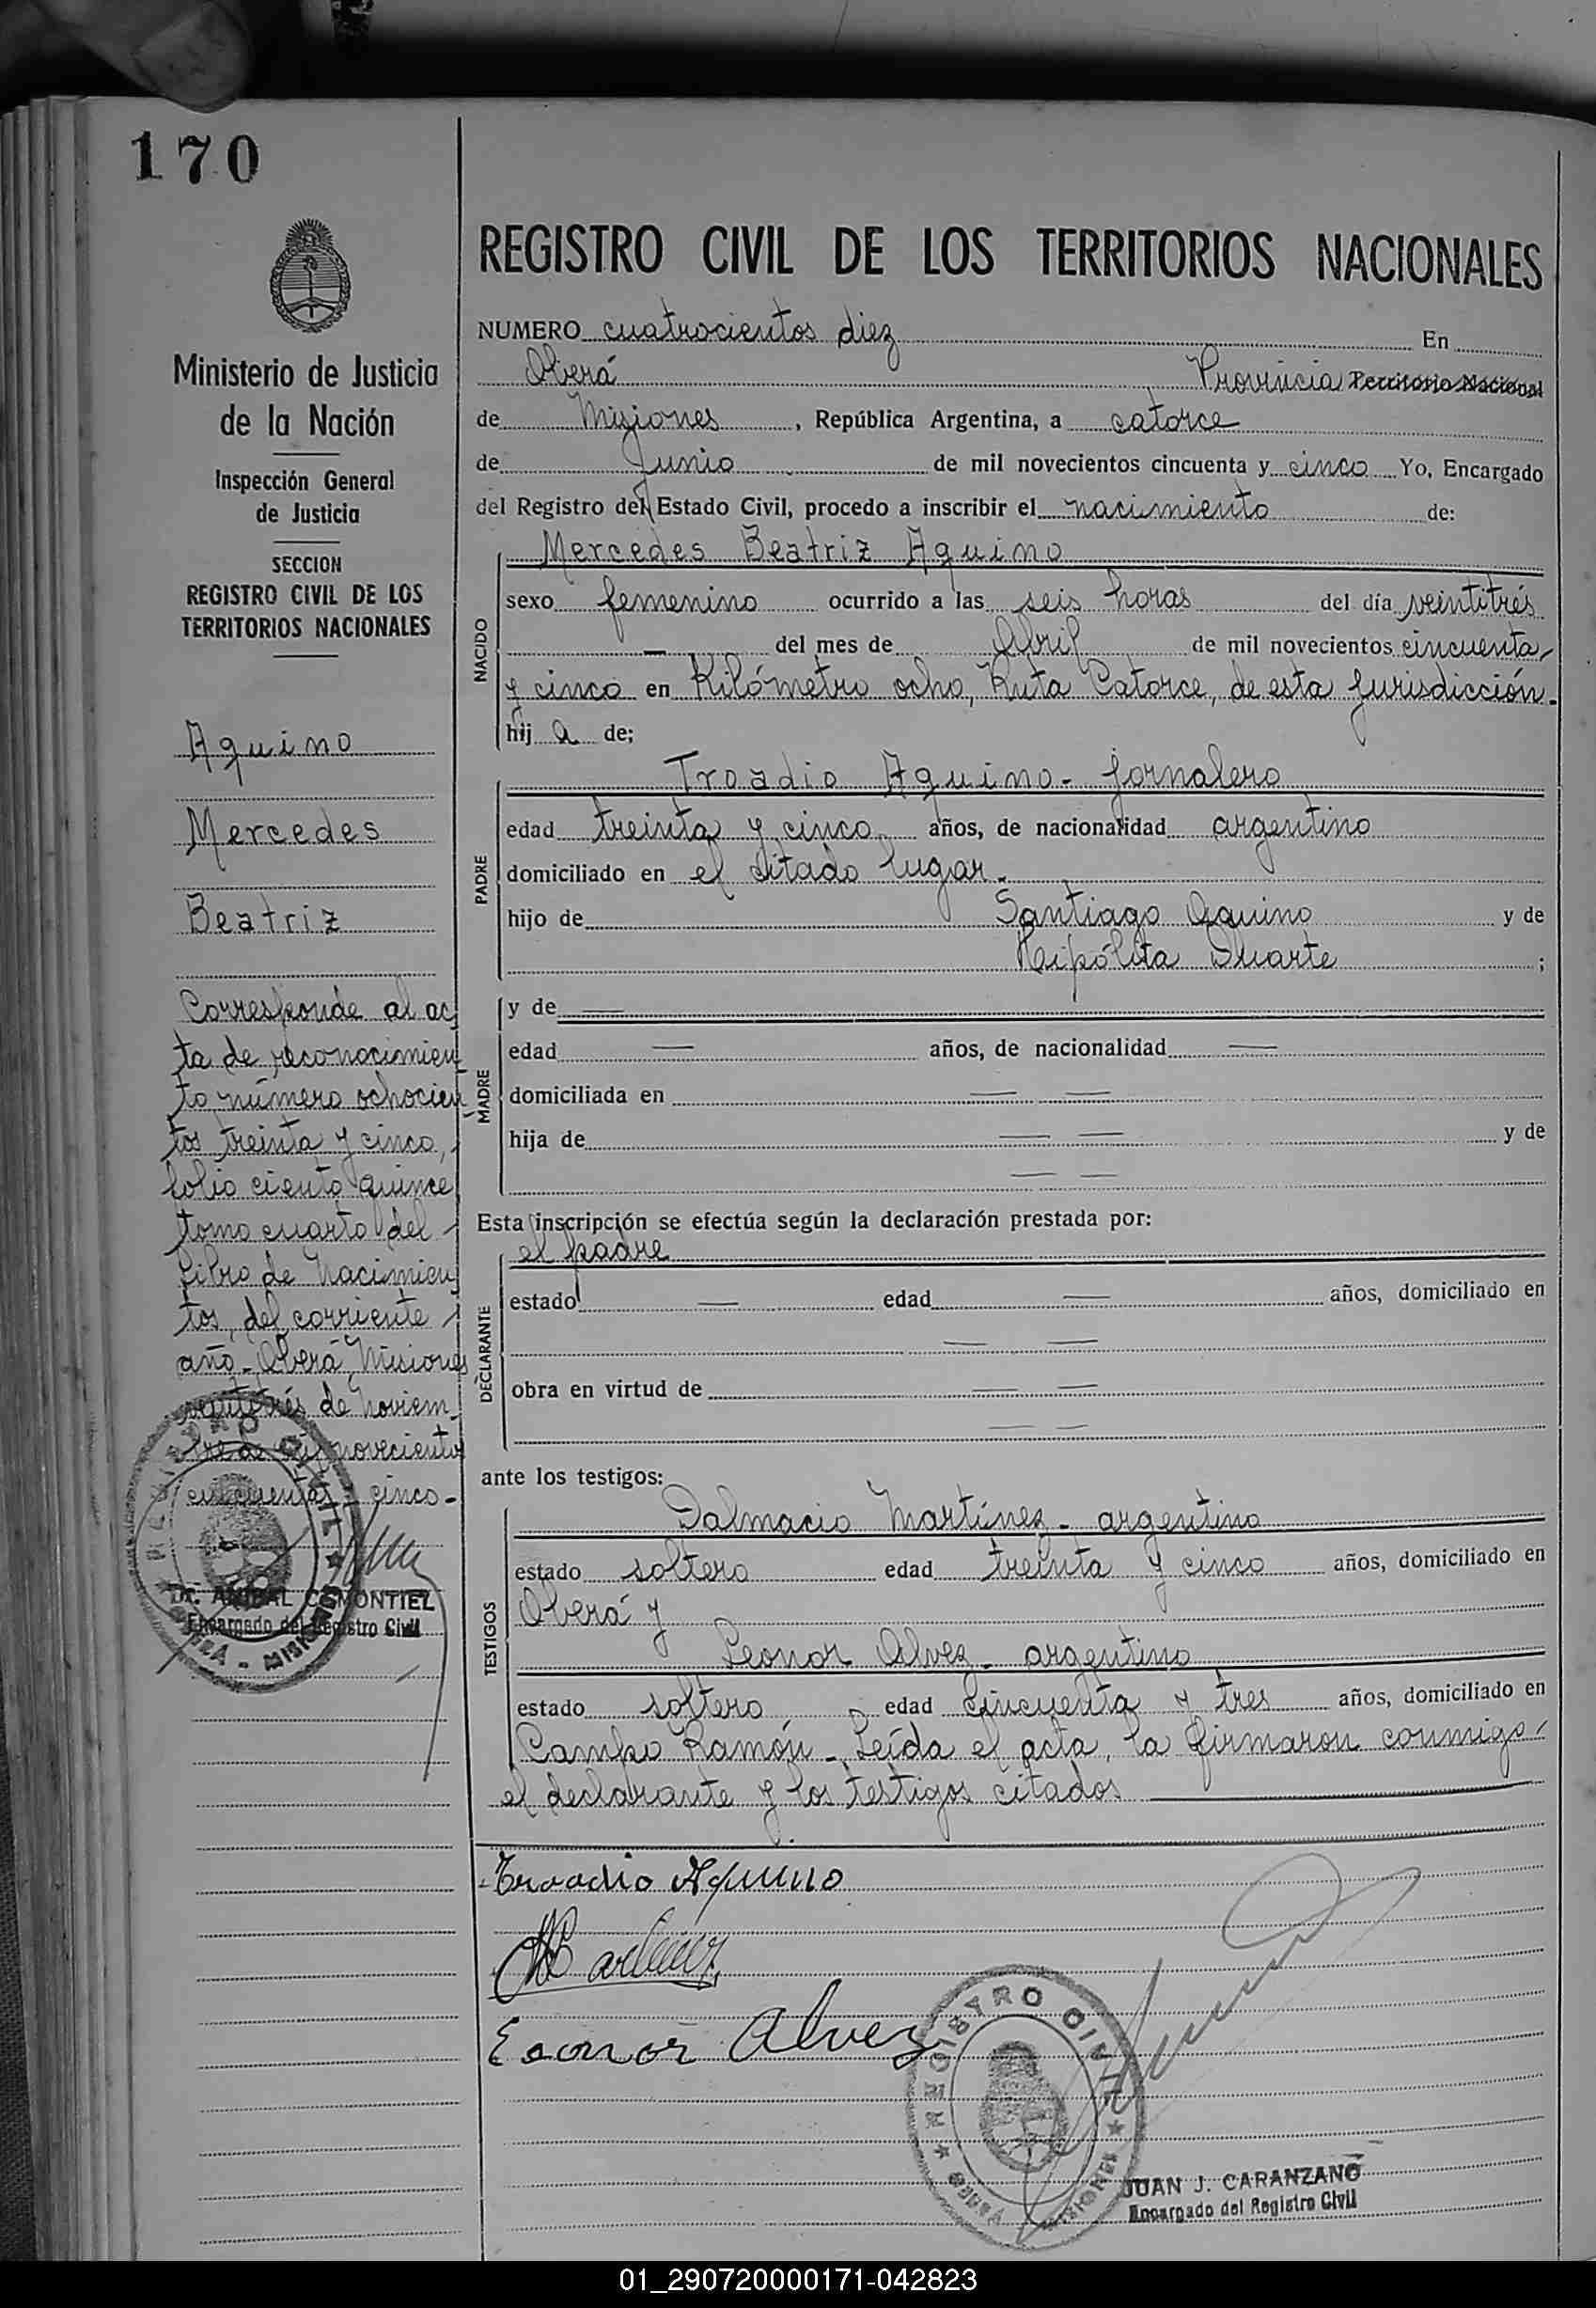 170
Ministerio de Justicia
de la Nación
Inspección General
de Justicia
SECCION
REGISTRO CIVIL DE LOS
TERRITORIOS NACIONALES
Aquino
Mercedes
Beatriz
Corresponde al ac
ta de reconocimien
to número ochocien
tos treinta y cinco,
folio ciento quince
tomo cuarto del
libro de Nacimien
tos, del corriente
año - Oberá, Misiones
veintitrés de Noviem
bre de mil novecientos
cincuenta y cinco -
Dr. ANIBAL C. MONTIEL
Encargado del Registro Civil
REGISTRO CIVIL
OBERA - MISIONES
REGISTRO CIVIL DE LOS TERRITORIOS NACIONALES
NUMERO cuatrocientos diez En
Oberá Provincia Territorio Nacional
de Misiones, República Argentina, a catorce
de Junio de mil novecientos cincuenta y cinco Yo, Encargado
del Registro del Estado Civil, procedo a inscribir el nacimiento de:
Mercedes Beatriz Aquino
NACIDO
sexo femenino ocurrido a las seis horas del día veintitrés
— del mes de Abril de mil novecientos cincuenta
y cinco en Kilómetro ocho, Ruta Catorce, de esta Jurisdicción -
hij a de;
Troadio Aquino - jornalero
PADRE
edad treinta y cinco años, de nacionalidad argentino
domiciliado en el citado lugar -
hijo de Santiago Aquino y de
Heipólita Duarte ;
y de —
MADRE
edad — años, de nacionalidad —
domiciliada en — —
hija de — — y de
— —
Esta inscripción se efectúa según la declaración prestada por:
el padre
DECLARANTE
estado — edad — años, domiciliado en
— —
obra en virtud de — —
— —
ante los testigos:
Dalmacio Martínez - argentino
TESTIGOS
estado soltero edad treinta y cinco años, domiciliado en
Oberá y
Leonor Alvez - argentino
estado soltero edad cincuenta y tres años, domiciliado en
Campo Ramón - Leída el acta, la firmaron conmigo
el declarante y los testigos citados
Troadio Aquino
Eeonor Alvez
REGISTRO CIVIL
OBERA MISIONES
JUAN J. CARANZANO
Encargado del Registro Civil
01_290720000171-042823